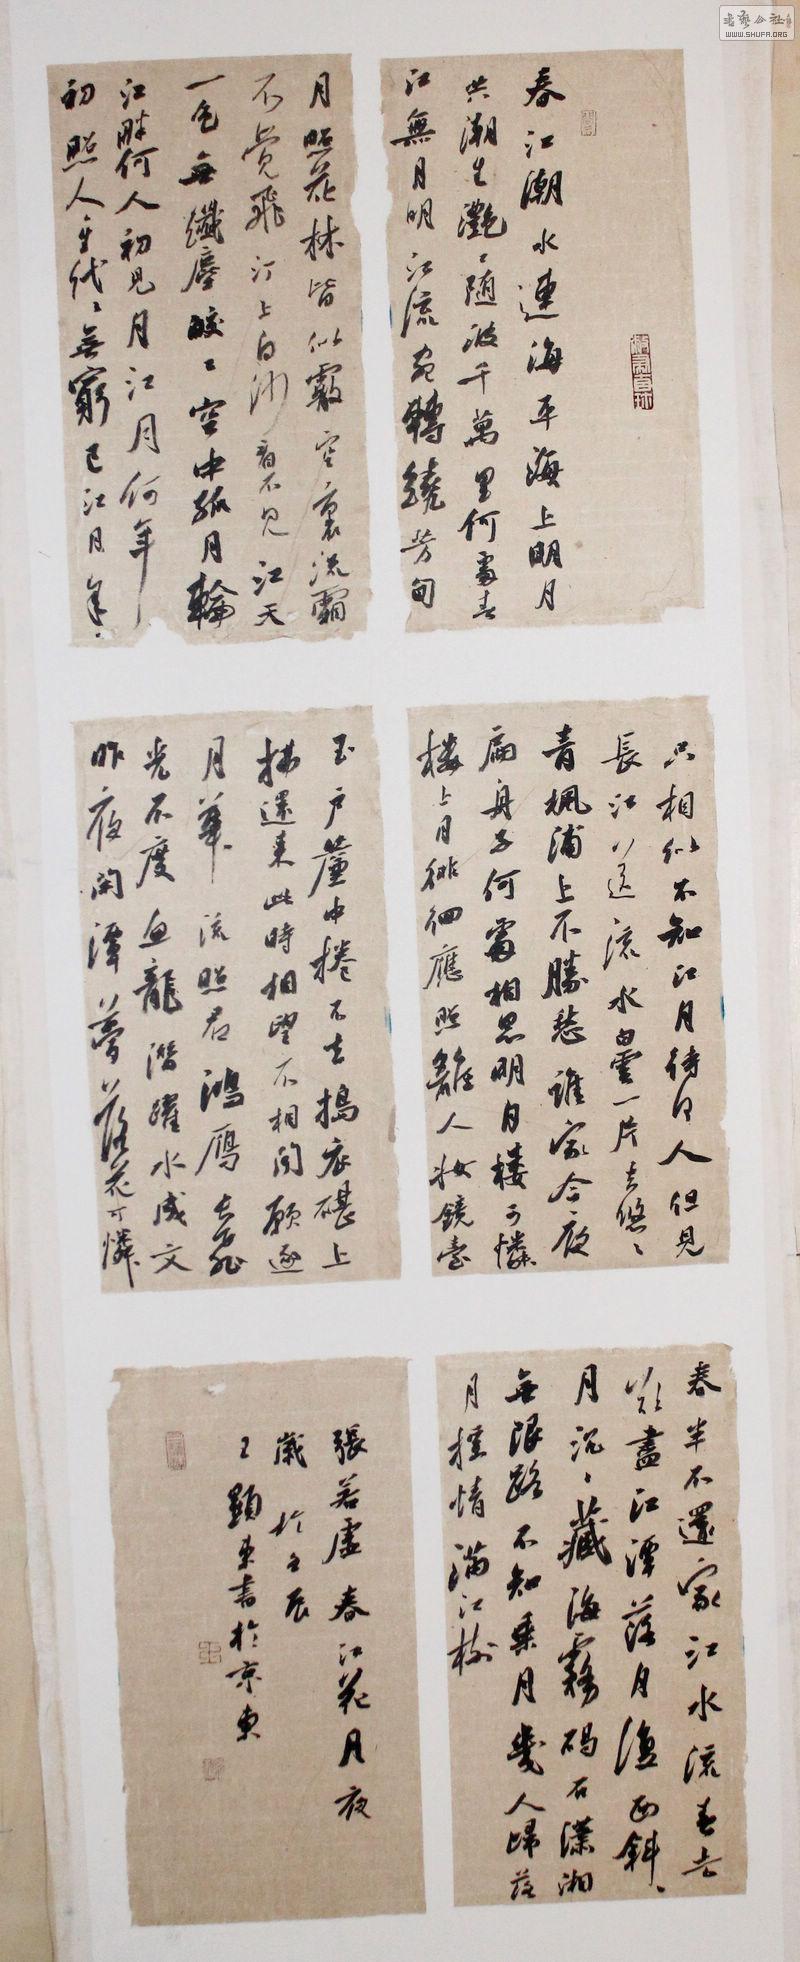 书艺公社
WWW.SHUFA.ORG
春江潮水連海平海上明月
共潮生灔〻随波千萬里何處春
江無月明江流宛轉繞芳甸
月照花林皆似霰空裏流霜
不覺飛汀上白沙看不見江天
一色無纖塵皎〻空中孤月輪
江畔何人初見月江月何年
初照人生代〻無窮已江月年〻
只相似不知江月待何人但見
長江送流水白雲一片去悠〻
青楓浦上不勝愁誰家今夜
扁舟子何處相思明月樓可憐
樓上月徘徊應照離人妝鏡臺
玉戶簾中捲不去搗衣碪上
拂還来此時相望不相聞願逐
月華流照君鴻雁長飛
光不度魚龍潛躍水成文
昨夜閑潭夢落花可憐
春半不還家江水流春去
欲盡江潭落月復西斜〻
月沉〻藏海霧碣石瀟湘
無限路不知乘月幾人歸落
月搖情滿江樹
張若虛春江花月夜
歲於壬辰
顯東書於京東